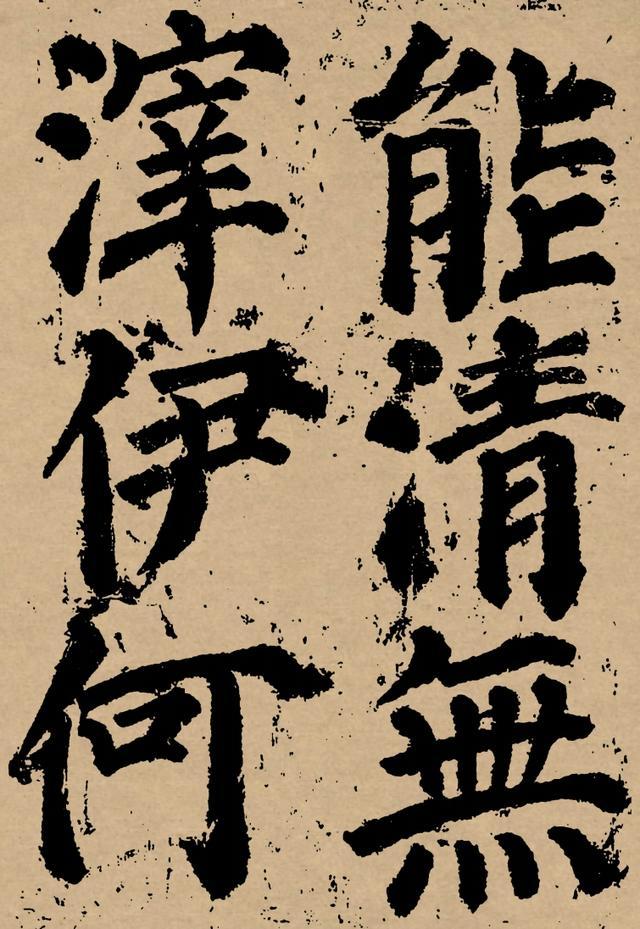 能清無
滓伊何